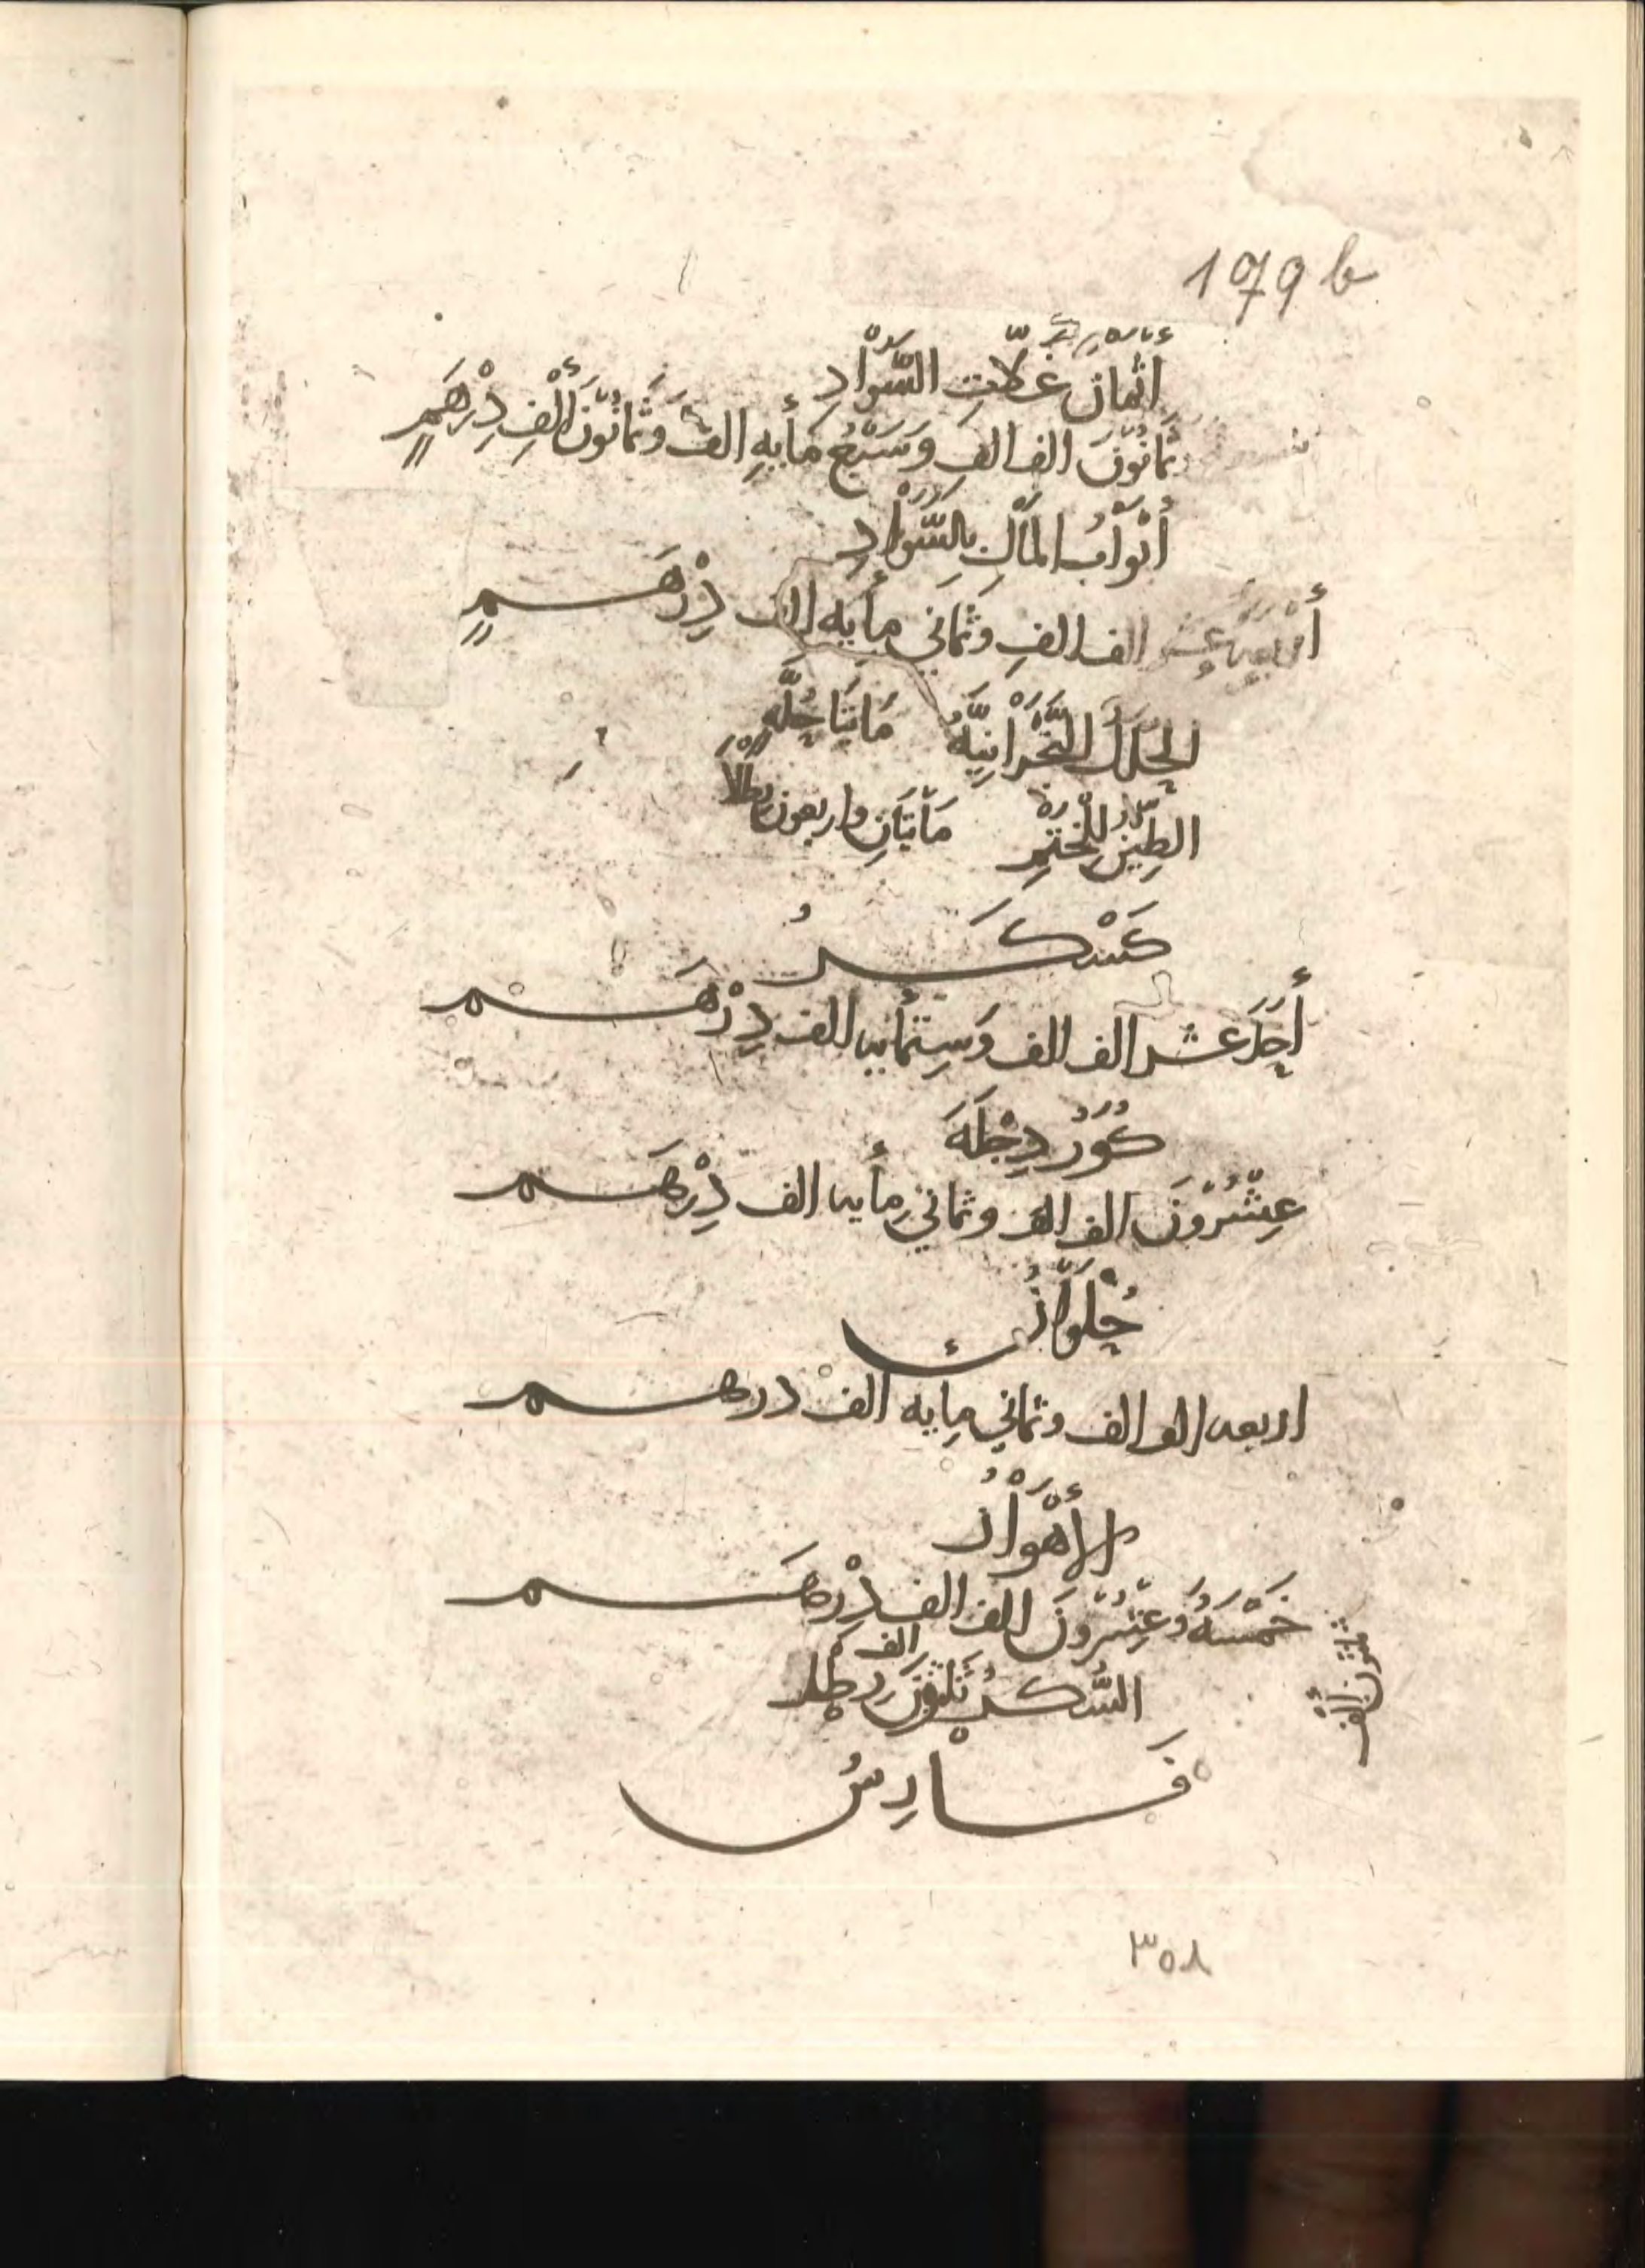 179 b
أَثْمَانُ غَلَّاتِ السَّوَادِ
ثَمَانُوْنَ الف الفِ وَسَبْعُ مَأيهِ الف وَثَمَانُوْنَ أَلْفِ دِرْهَمٍ
أَبْوَابُ المَالِ بِالسَّوَادِ
أَرْبَعه عشر الف الفِ وَثَمَانِي مِأيه الف دِرْهَمٍ
الحُلَلُ النَّجْرَانِيَّةُ مَايَتَا حُلَّهٍ
الطِّيْنُ لِلْخَتْمِ مَأيَتَانِ واربعون رِطْلاً
كَسْكَرُ
أَحَدَ عشر الف الف وَسِتُّمأيه الف دِرْهَم
كُوَرُ دِجْلَهَ
عِشْرُوْنَ الف الف وثماني مِأيه الف دِرْهَم
حُلْوَانُ
اربعه الف الف وثماني مِايه الف درهم
الأَهْوَازُ
خَمْسَهُ وَعِشْرُوْنَ الف الف دِرْهَم
الف
السُّكَرُ ثَلثونَ رطل
ثلثون ألف
فَارِسُ
٣٥٨